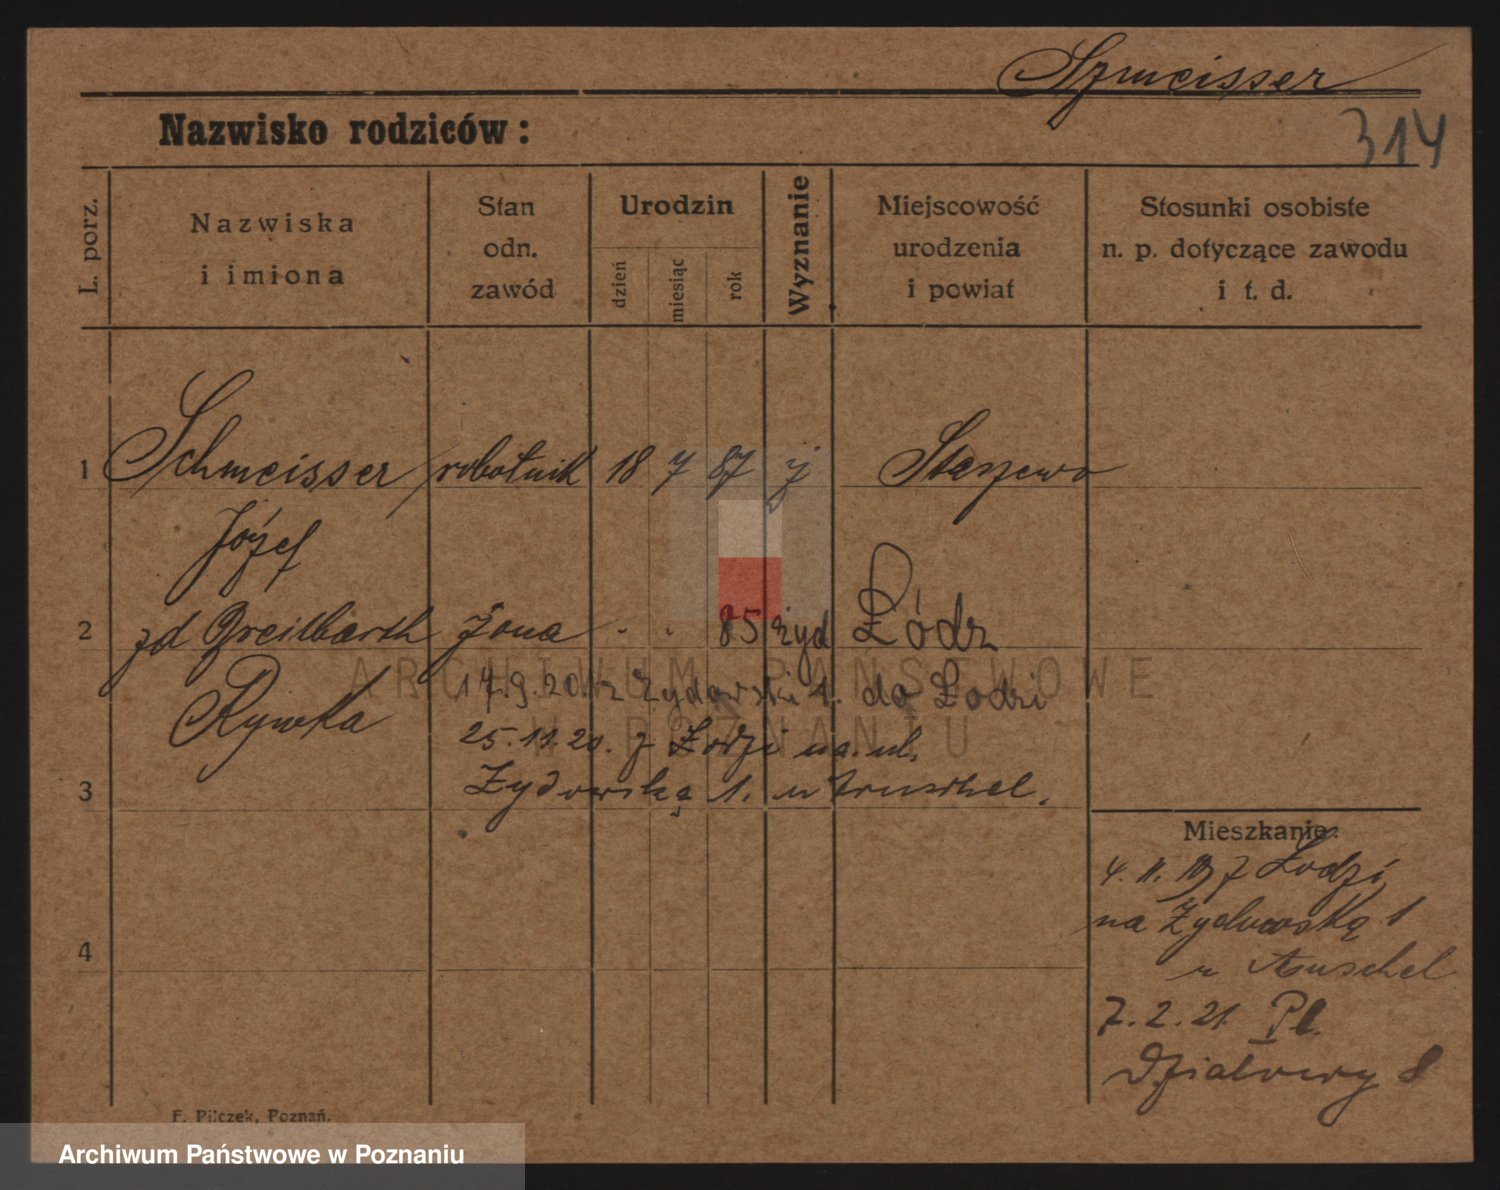 Szmeisser
Nazwisko rodziców:
314
L. porz.
Nazwiska
i imiona
Stan
odn.
zawód
Urodzin
dzień
miesiąc
rok
Wyznanie
Miejscowość
urodzenia
i powiat
Stosunki osobiste
n. p. dotyczące zawodu
i t. d.
1 Schmeisser robotnik 18 7 87 j Staszewo
Józef
2 zd Breitbarth żona . . 85 żyd Łódz
Rywka
17.9.20. z Żydowski 1. do Łodzi
25.11.20. z Łodzi na ul.
3 Żydowską 1. u
Mieszkanie:
4. 11. 19 z Łodzi
na Żydowską 1
4
u
7. 2. 21. Pl.
Działowy 8
F. Pilczek, Poznań.
ARCHIWUM PAŃSTWOWE
W POZNANIU
Archiwum Państwowe w Poznaniu